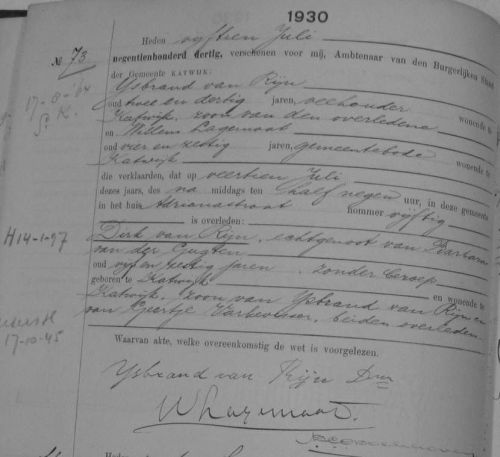 1930
Heden vyftien Juli
No. 73
negentienhonderd dertig, verschenen voor mij, Ambtenaar van den Burgerlijken Stand
der Gemeente KATWIJK:
Ysbrand van Rijn
oud twee en dertig jaren, veehouder wonende te
Katwijk, zoon van den overledene
en Willem Lagemaat
oud vier en zestig jaren, gemeentebode wonende te
Katwijk
die verklaarden, dat op veertien Juli
dezes jaars, des na middags ten half negen uur, in deze gemeente
in het huis Adrianastraat nommer vyftig
is overleden:
Dirk van Rijn, echtgenoot van Barbara
van der Gugten
oud vyf en zestig jaren, zonder beroep
geboren te Katwijk en wonende te
Katwijk, zoon van Ysbrand van Rijn en
van Geertje, beiden overleden
Waarvan akte, welke overeenkomstig de wet is voorgelezen.
Ysbrand van Rijn Dzn
W Lagemaat.
H14-1-97
17-10-45